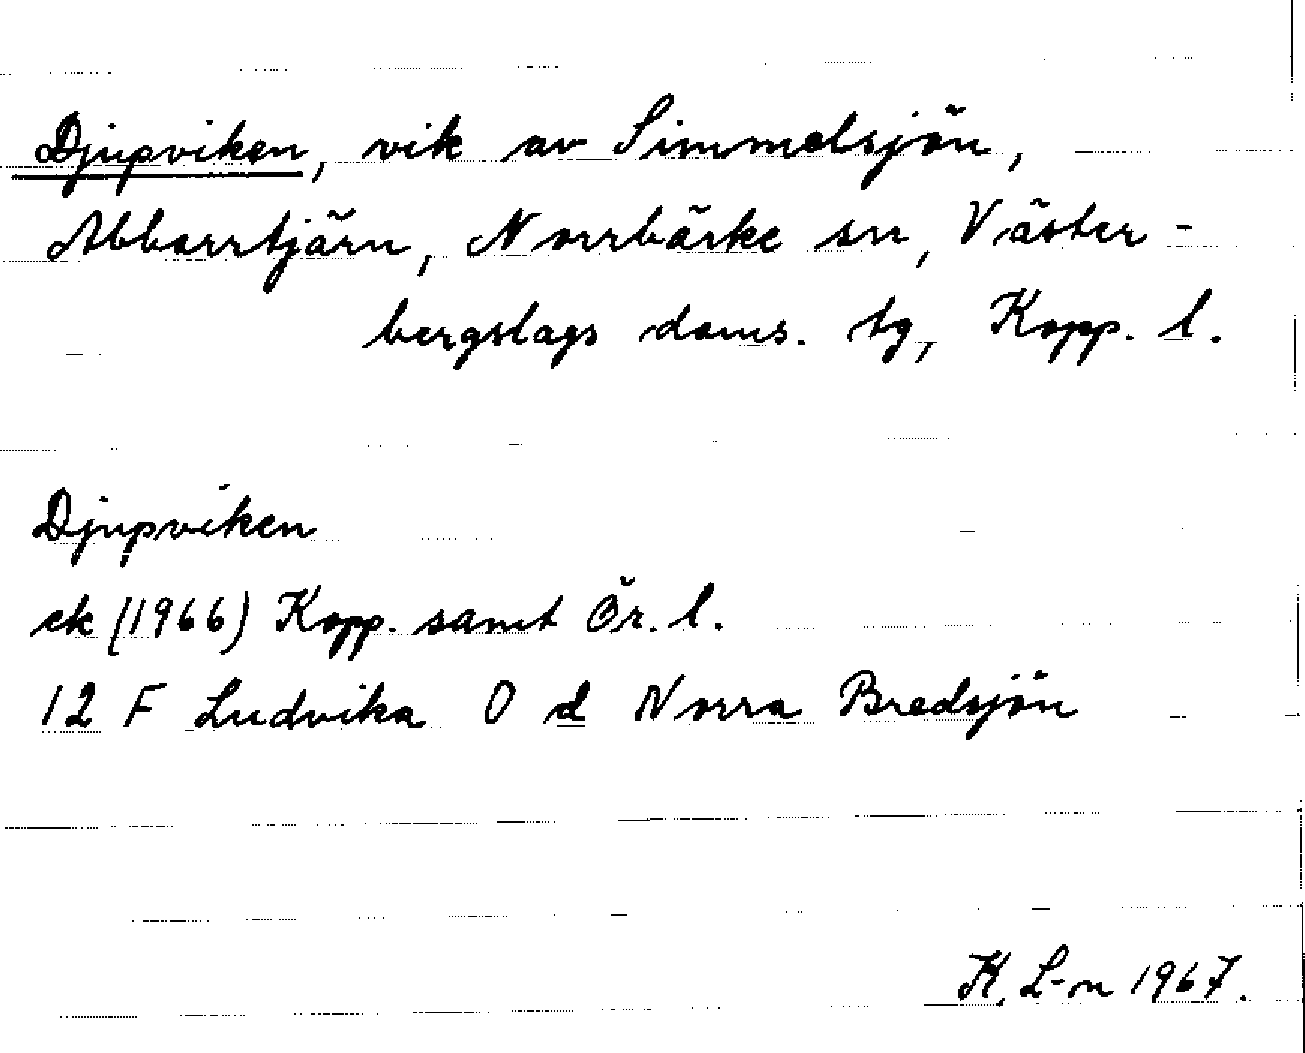 Djupviken, vik av Simmelsjön,
Abborrtjärn, Norrbärke sn, Väster-
bergslags doms. tg, Kopp. l.
Djupviken
ek (1966) Kopp. samt Ör. l.
12 F Ludvika 0 d Norra Bredsjön
K. L-n 1967.